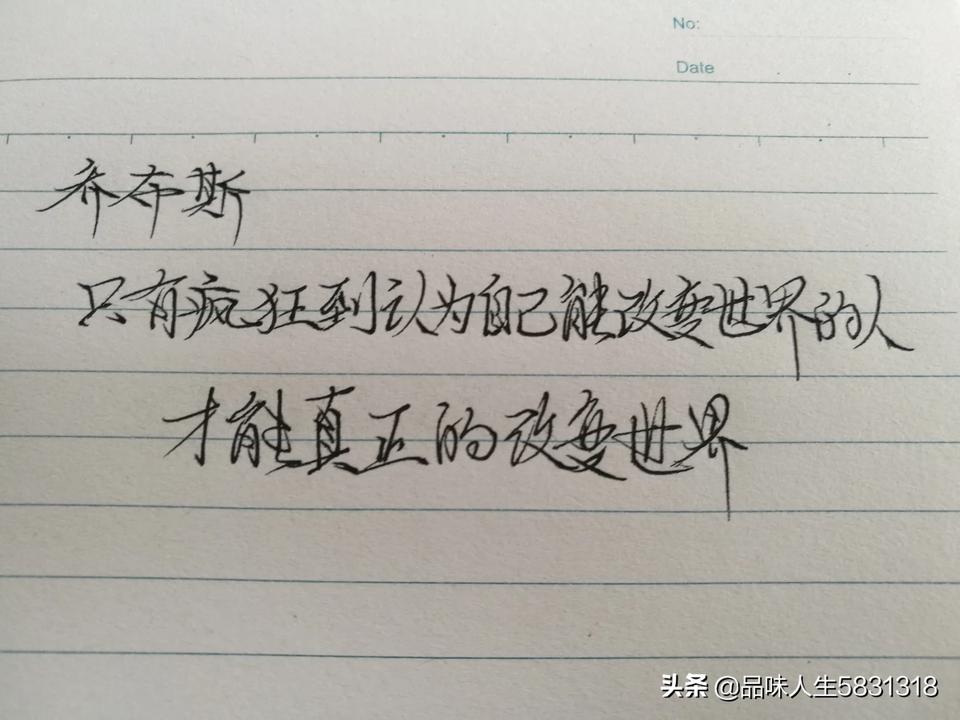 No:
Date
乔布斯
只有疯狂到认为自己能改变世界的人
才能真正的改变世界
头条 @品味人生5831318